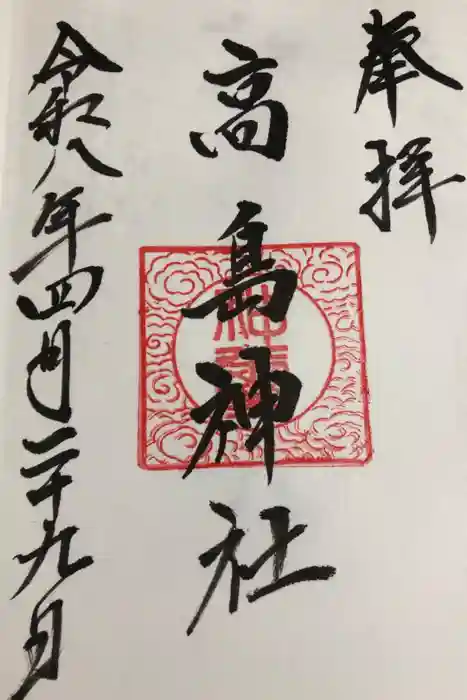 奉拝
高島神社
令和八年四月二十九日